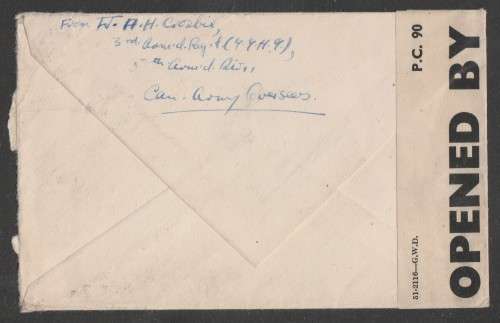 From W. A. H. Crosbie,
3rd Armd. Regt (G.G.H.G),
5th Armd Div,
Can. Army Overseas.
P.C. 90
OPENED BY
51-2116—G.W.D.